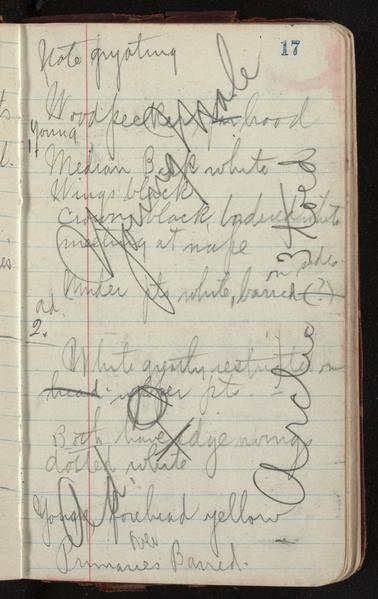 17
Note
Woodpeckers in brood
Young
1
Median Back white
Wings black
Crown black, bordered white
meeting at nape
on side
Under pts white, barred (?)
ad.
2.
White greatly restricted on
head. upper pts.
Both have edge wings
dotted white
Young forehead yellow
Primaries Barred.
Young Male
Ad. ♀
Archie